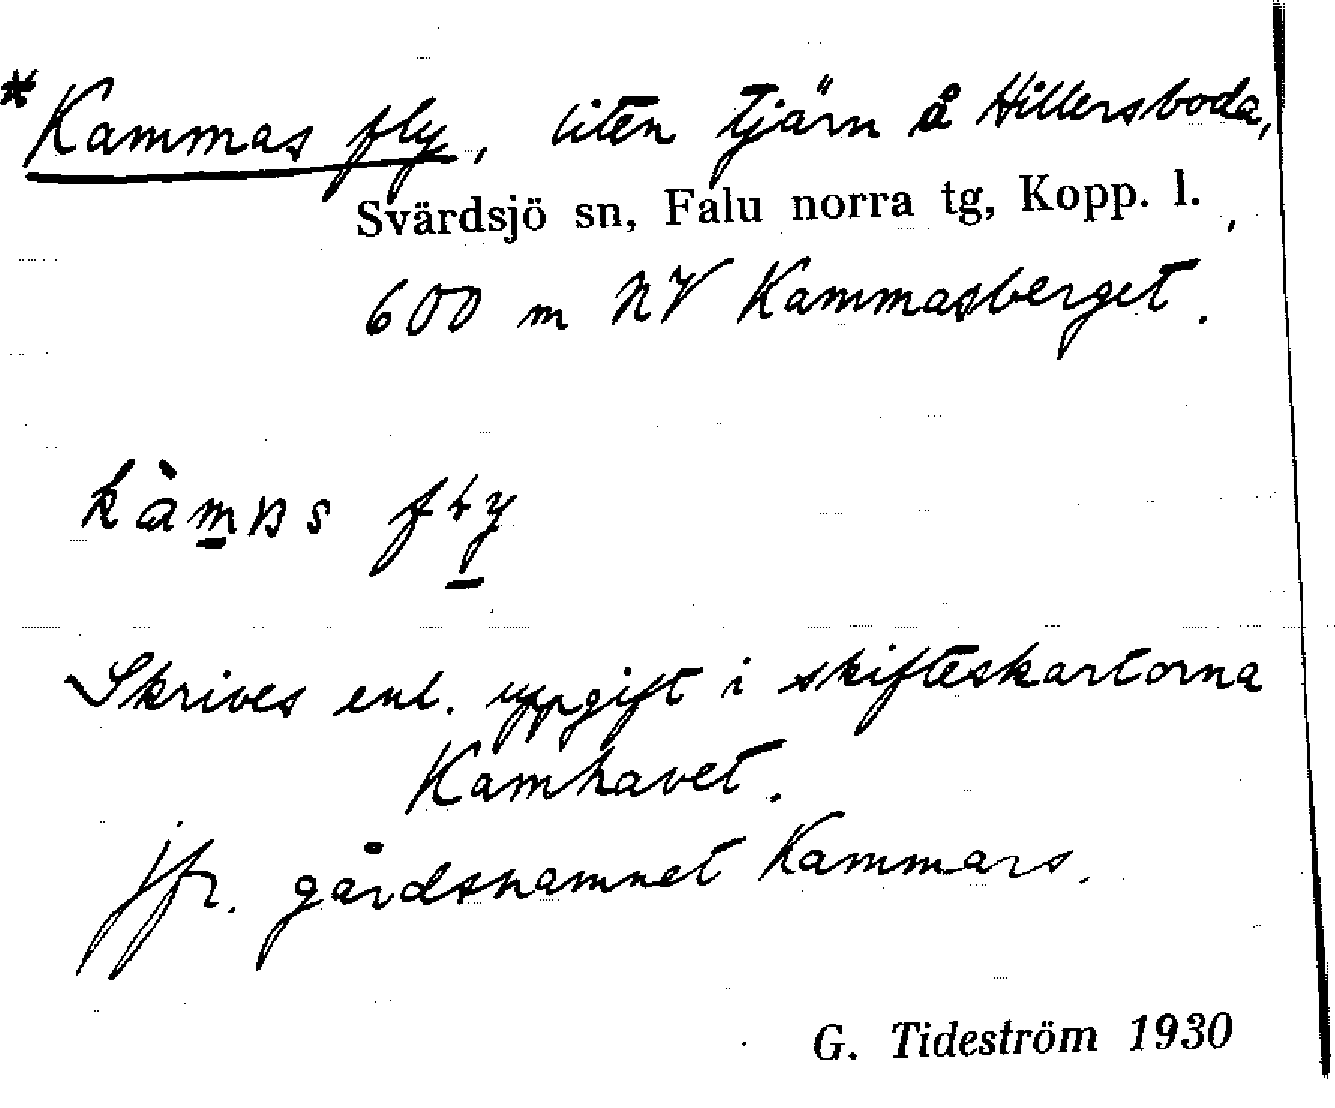 * Kammas fly, liten tjärn å Hillersboda,
Svärdsjö sn, Falu norra tg, Kopp. l.,
600 m NV Kammasberget.
Skrives enl. uppgift i skifteskartorna
Kamhavet.
jfr. gårdsnamnet Kammars.
G. Tideström 1930